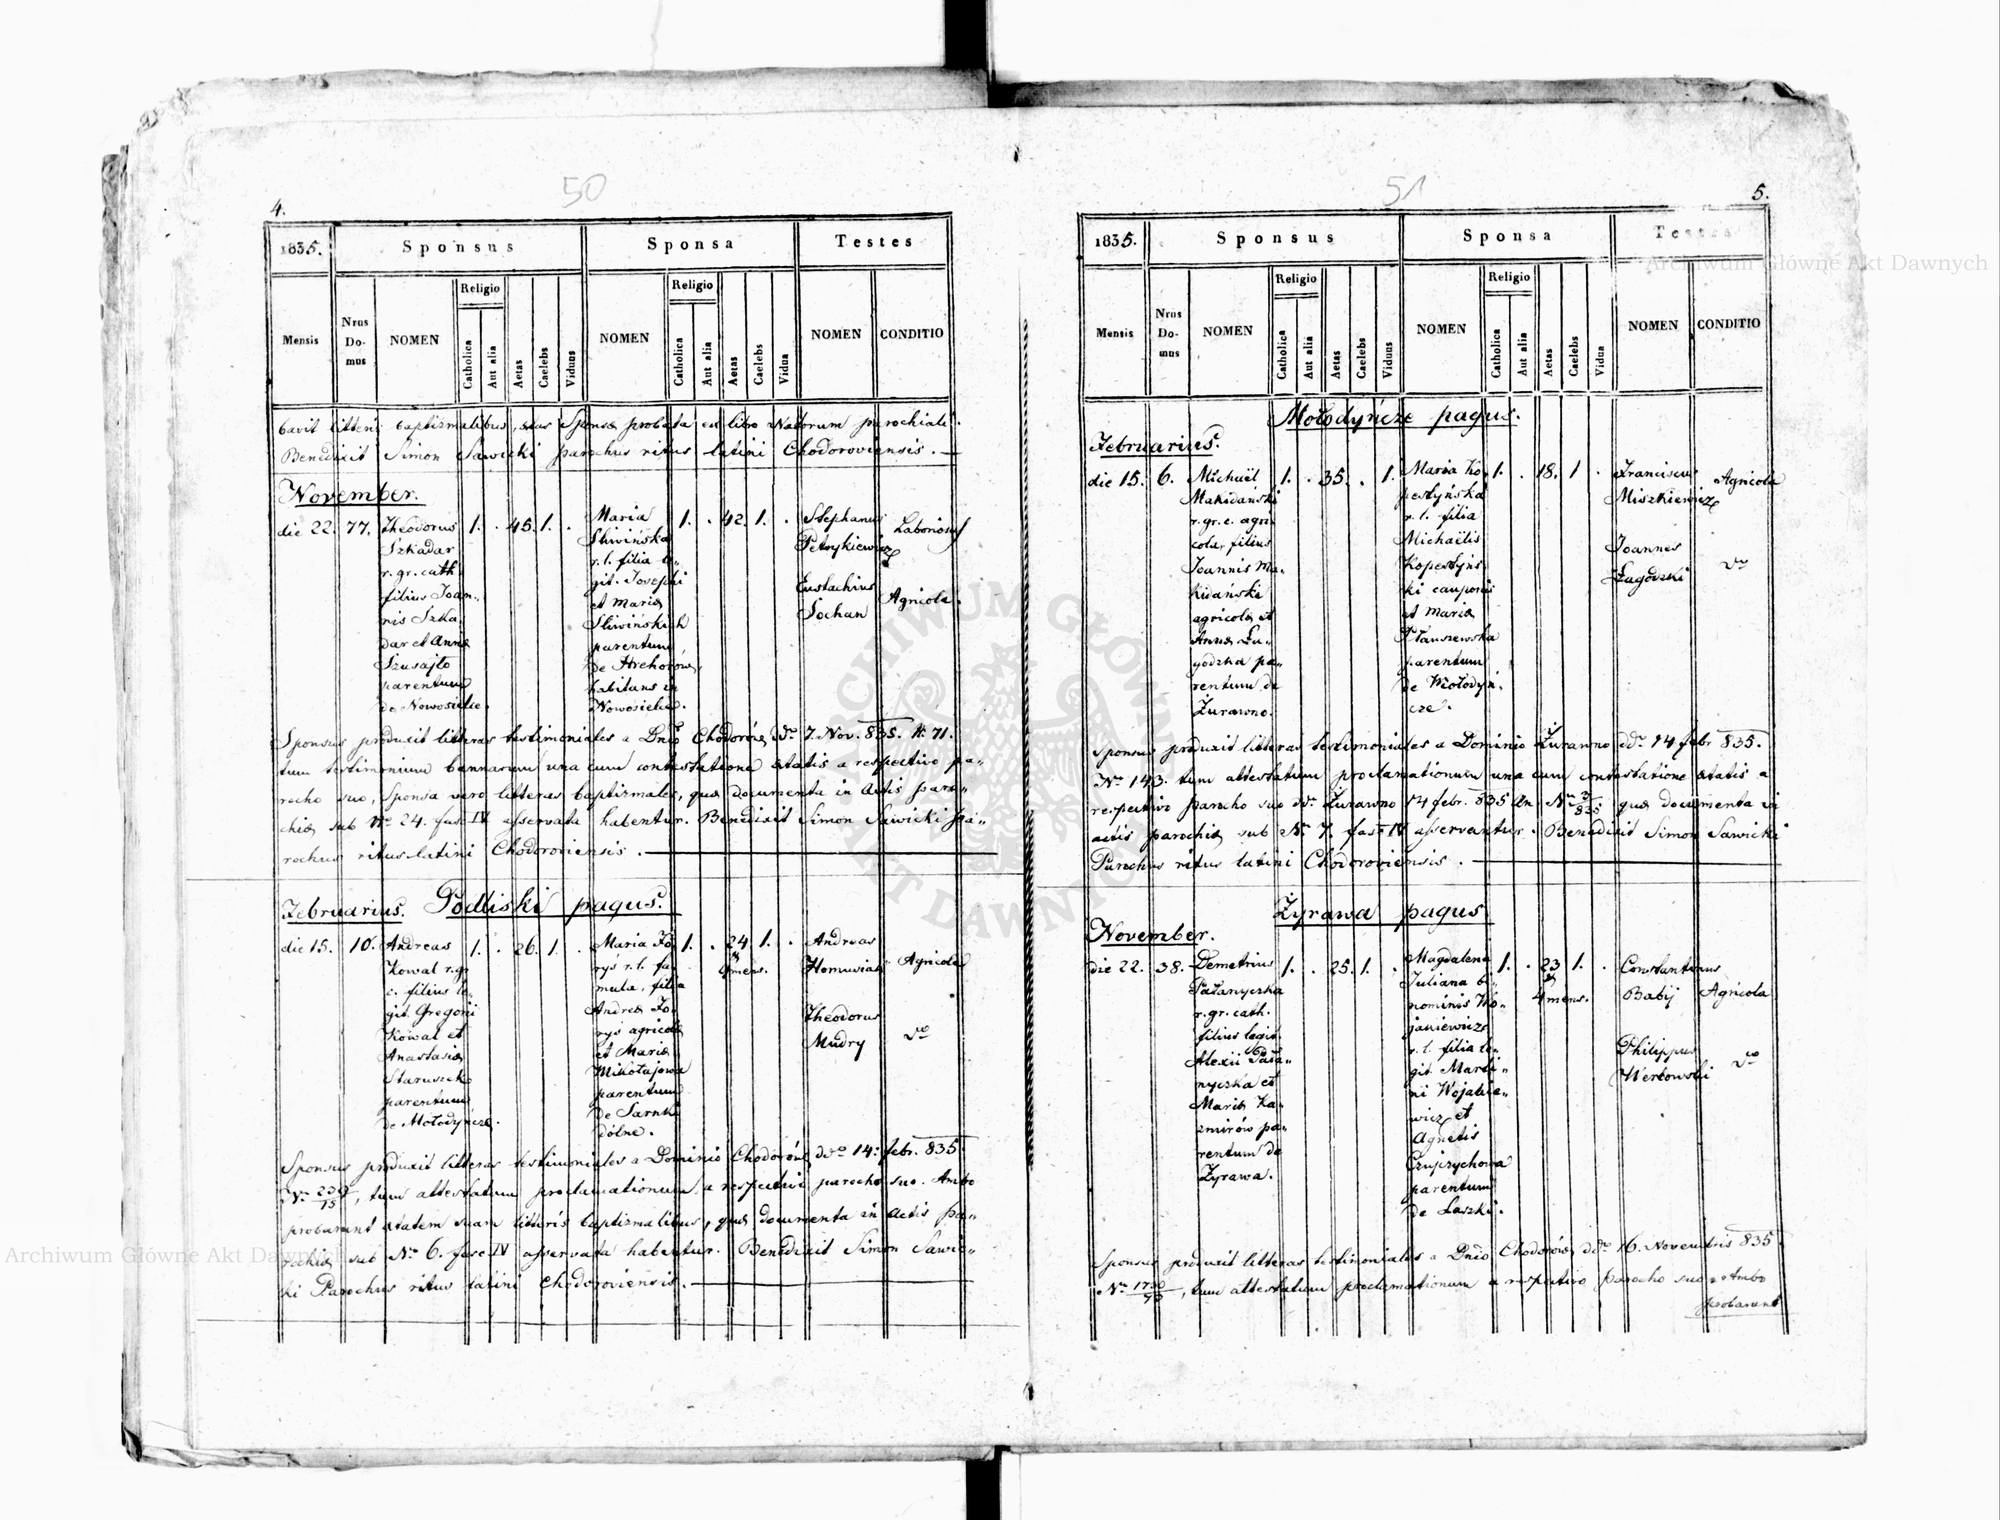 50
4.
1835.
Sponsus
Sponsa
Testes
Mensis
Nrus Do-mus
NOMEN
Religio
Catholica
Aut alia
Aetas
Caelebs
Viduus
NOMEN
Religio
Catholica
Aut alia
Aetas
Caelebs
Vidua
NOMEN
CONDITIO
bavit litteris baptizmalibus, Sponsa probata ex libro Natorum parochiali.
Benedixit Simon Sawicki parochus ritus latini Chodoroviensis.
November.
die 22. 77.
Theodorus
Szkadar
r. gr. cath
filius Joan-
nis Szka
dar et Anna
Szusajło
parentum
de Nowosielce.
1. . 45. 1. .
Maria
Sliwińska
r. l. filia le-
git. Josephi
et Maria
Sliwińskich
parentum
de Hrehorów,
habitans in
Nowosielce.
1. . 42. 1. .
Stephanus
Petrykiewicz
Laboriosus
Eustachius
Sochan
Agricola.
Sponsus produxit litteras testimoniales a Dnio Chodorów ddo 7. Nov. 835. N 71.
tum testimonium bannorum una cum contestatione ætatis a respectivo pa-
rocho suo, Sponsa vero litteras baptizmales, quæ documenta in Actis paro-
chiæ sub No 24. fasc IV asservata habentur. Benedixit Simon Sawicki Pa-
rochus ritus latini Chodoroviensis.
Februarius. Podliski pagus.
die 15. 10.
Andreas
Kowal r. gr
c. filius le-
git. Gregorii
Kowal et
Anastasia
Staruszek
parentum
de Mołodyńcze.
1. . 26. 1. .
Maria Jo
ryś r. l. fa-
mula, filia
Andreæ Jo-
ryś agricola
et Mariæ
Mikołajowa
parentum
de Sarnki
dolne.
1. . 24 1. .
mens.
Andreas
Homuniak
Agricola
Theodorus
Mudry
do
Sponsus produxit litteras testimoniales a Dominio Chodorów, ddo 14. febr. 835.
tum attestatum proclamationum a respectivi parocho suo. Ambo
probarunt ætatem suam litteris baptizmalibus, quæ documenta in Actis pa-
rochiæ sub No 6. fasc IV asservata habentur. Benedixit Simon Sawic-
ki Parochus ritus latini Chodoroviensis.
51
5.
1835.
Sponsus
Sponsa
Testes
Mensis
Nrus Do-mus
NOMEN
Religio
Catholica
Aut alia
Aetas
Caelebs
Viduus
NOMEN
Religio
Catholica
Aut alia
Aetas
Caelebs
Vidua
NOMEN
CONDITIO
Mołodyńcze pagus.
Februarius.
die 15. 6.
Michaël
Makidański
r. gr. c. agri
cola, filius
Joannis Ma-
kidański
agricola et
Anna Ła-
godzka pa-
rentum de
Żurawno.
1. . 35. . 1.
Maria Ko
pestyńska
r. l. filia
Michaëlis
Kopestyńs
ki cauponis
et Mariæ
Ptauszewska
parentum
de Mołodyń-
cze.
1. . 18. 1 .
Franciscus
Miszkiewicz
Agricola
Joannes
Łagodzki
do
Sponsus produxit litteras testimoniales a Dominio Żurawno ddo 14 febr 835.
No 143. tum attestatum proclamationum una cum contestatione ætatis a
respectivo parocho suo ddo Żurawno 14 febr. 835 quæ documenta in
actis parochiæ sub No 7. fasc IV asservantur. Benedixit Simon Sawicki
Parochus ritus latini Chodoroviensis.
Żyrawa pagus
November.
die 22. 38.
Demetrius
Pałanyczka
r. gr. cath.
filius legit.
Alexii Pała-
nyczka et
Maria Ka-
zmirów pa-
rentum de
Żyrawa.
1. . 25. 1. .
Magdalena
Juliana b-
nominis Wo-
janiewicz
r. l. filia le-
git. Marti-
ni Wojanie-
wicz et
Agnetis
Czujzychowa
parentum
de Laszki.
1. . 23 1. .
4 mens.
Constantinus
Babij
Agricola
Philippus
Werbowski
do
Sponsus produxit litteras testimoniales a Dnio Chodorów ddo 16. Novembris 835.
tum attestatum proclamationum a respectivo parocho suo. Ambo
probarunt
Archiwum Główne Akt Dawnych
Archiwum Główne Akt Dawnych
ARCHIWUM GŁÓWNE AKT DAWNYCH